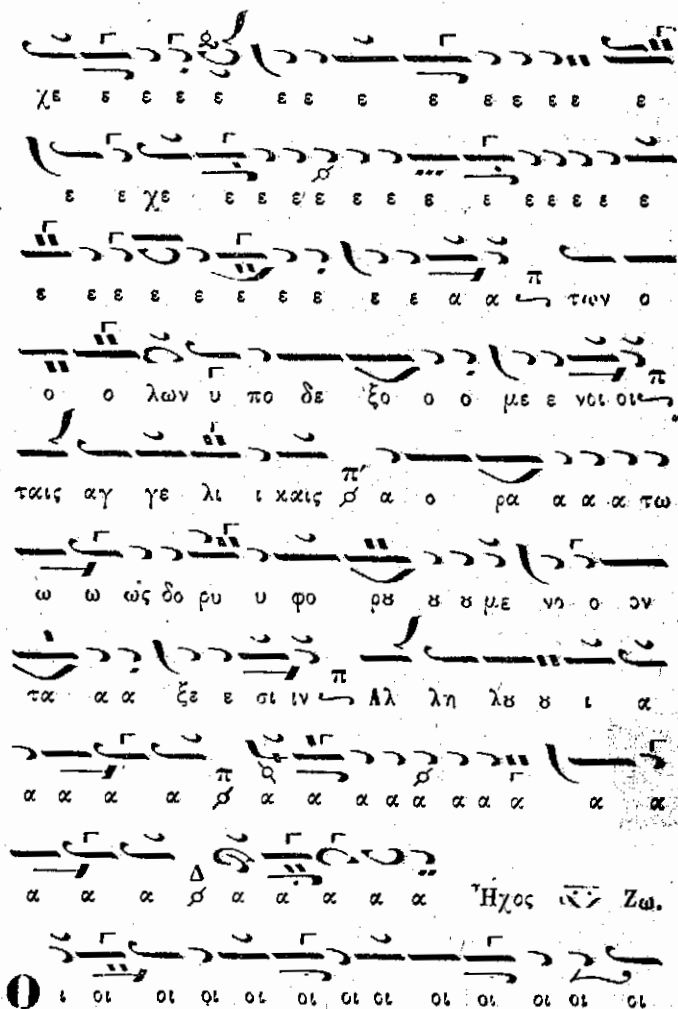 χε ε ε ε ε ε ε ε ε ε ε ε ε ε
ε ε χε ε ε ε ε ε ε ε ε ε ε ε ε ε
ε ε ε ε ε ε ε ε ε ε α α π των ο
ο ο λων υ πο δε ξο ο ο με ε νοι οι π
ταις αγ γε λι ι καις π α ο ρα α α α τω
ω ω ως δο ρυ υ φο ρȣ ȣ ȣ με νο ο ον
τα α α ξε ε σι ιν π Αλ λη λȣ ȣ ι α
α α α α π α α α α α α α α α α
α α α Δ α α α α α Ἦχος Ζω.
Ο ι οι οι οι οι οι οι οι οι οι οι οι οι